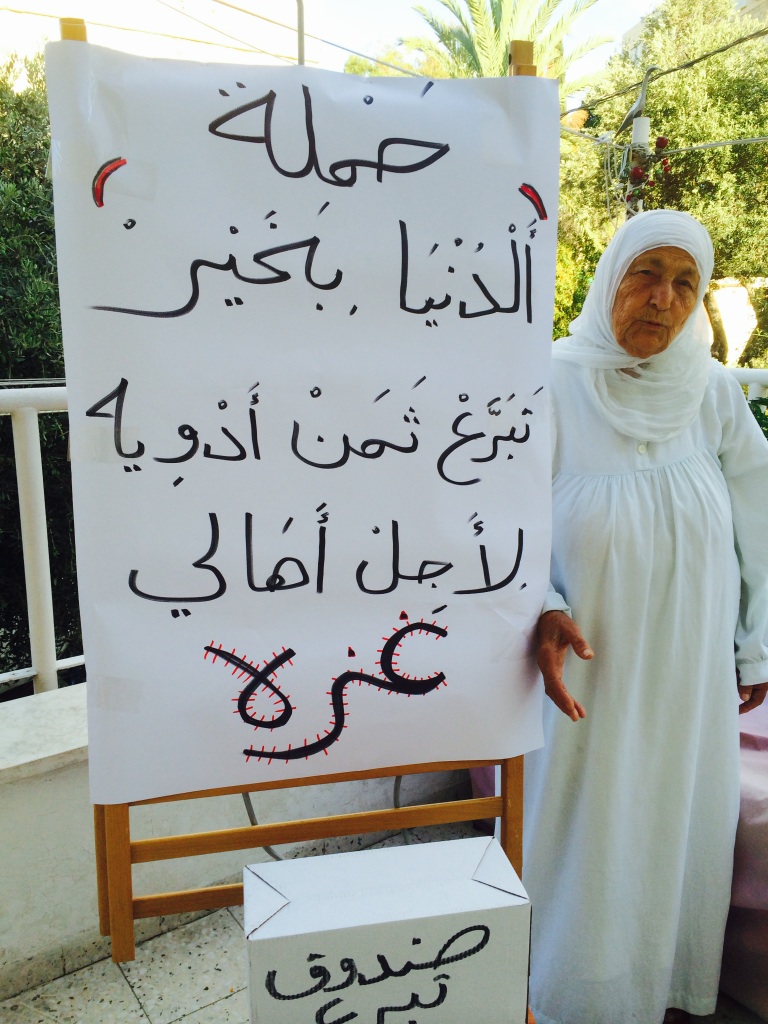 حَمْلة
أَلْدُنْيَا بِخَيْرْ
تَبَرَّعْ ثَمَنْ أَدْوِيه
لِأَجِلْ أَهَالي
غَزه
صندوق
تبرع